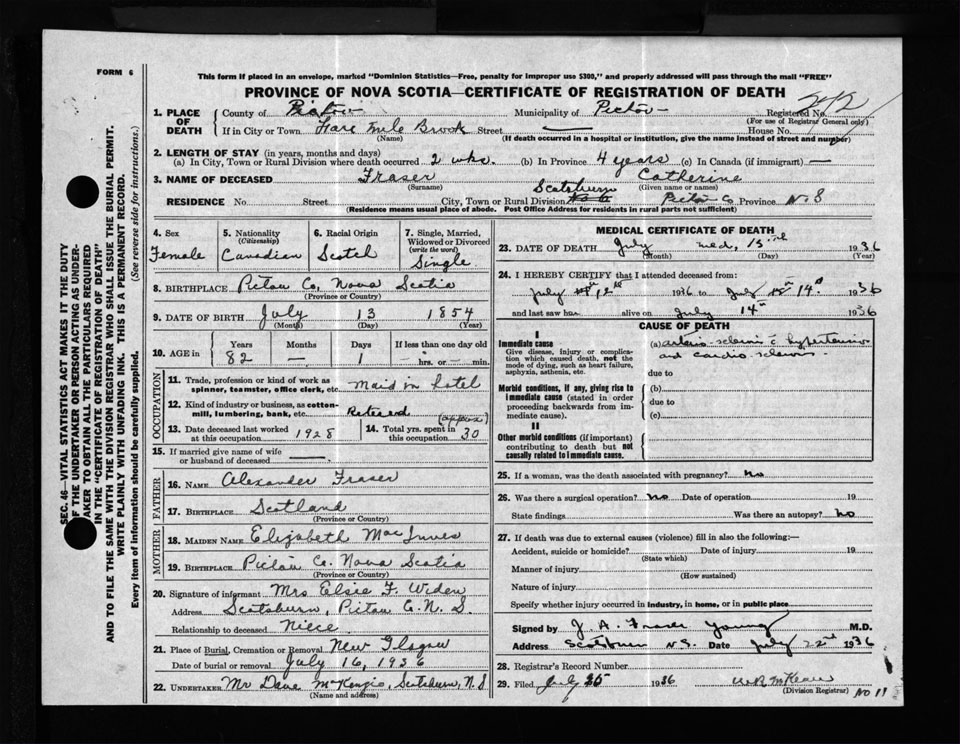 FORM 6
This form if placed in an envelope, marked "Dominion Statistics—Free, penalty for improper use $300," and properly addressed will pass through the mail "FREE"
PROVINCE OF NOVA SCOTIA—CERTIFICATE OF REGISTRATION OF DEATH
1. PLACE OF DEATH County of Pictou Municipality of Pictou Registered No.
(For use of Registrar General only)
If in City or Town Mile Brook Street House No.
(Name) (If death occurred in a hospital or institution, give the name instead of street and number)
2. LENGTH OF STAY (in years, months and days)
(a) In City, Town or Rural Division where death occurred 2 wks. (b) In Province 4 years (c) In Canada (if immigrant) —
3. NAME OF DECEASED Fraser Catherine
(Surname) (Given name or names)
RESIDENCE No. Street City, Town or Rural Division Scotsburn Pictou Co Province N.S
(Residence means usual place of abode. Post Office Address for residents in rural parts not sufficient)
4. Sex Female
5. Nationality (Citizenship) Canadian
6. Racial Origin Scotch
7. Single, Married, Widowed or Divorced (write the word) Single
8. BIRTHPLACE Pictou Co, Nova Scotia
(Province or Country)
9. DATE OF BIRTH July 13 1854
(Month) (Day) (Year)
10. AGE in Years Months Days If less than one day old
82 — 1 hrs. or min.
OCCUPATION
11. Trade, profession or kind of work as spinner, teamster, office clerk, etc. Maid in hotel
12. Kind of industry or business, as cotton-mill, lumbering, bank, etc. Retired
13. Date deceased last worked at this occupation 1928 14. Total yrs. spent in this occupation (approx) 30
15. If married give name of wife or husband of deceased —
FATHER
16. NAME Alexander Fraser
17. BIRTHPLACE Scotland
(Province or Country)
MOTHER
18. MAIDEN NAME Elizabeth MacInnes
19. BIRTHPLACE Pictou Co. Nova Scotia
(Province or Country)
20. Signature of informant Mrs Elsie F. Widen
Address Scotsburn, Pictou Co. N. S.
Relationship to deceased Niece
21. Place of Burial, Cremation or Removal New Glasgow
Date of burial or removal July 16, 1936
22. UNDERTAKER Mr Dave McKenzie, Scotsburn, N. S
(Name and address)
MEDICAL CERTIFICATE OF DEATH
23. DATE OF DEATH July 1936
(Month) (Day) (Year)
24. I HEREBY CERTIFY that I attended deceased from:
July 1936 to July 14th 1936
and last saw her alive on July 14th 1936
CAUSE OF DEATH
I
Immediate cause
Give disease, injury or complication which caused death, not the mode of dying, such as heart failure, asphyxia, asthenia, etc.
(a) arterio-sclerosis c hypertension
and cardio-sclerosis
due to
Morbid conditions, if any, giving rise to immediate cause (stated in order proceeding backwards from immediate cause).
(b)
due to
(c)
II
Other morbid conditions (if important) contributing to death but not causally related to immediate cause.
25. If a woman, was the death associated with pregnancy? No
26. Was there a surgical operation? No Date of operation 19
State findings Was there an autopsy? No
27. If death was due to external causes (violence) fill in also the following:—
Accident, suicide or homicide? Date of injury 19
(State which)
Manner of injury
(How sustained)
Nature of injury
Specify whether injury occurred in industry, in home, or in public place
Signed by J. A. Fraser Young M.D.
Address Scotsburn N.S. Date July 22nd 1936
28. Registrar's Record Number
29. Filed July 1936
(Division Registrar) No 11
SEC. 46—VITAL STATISTICS ACT MAKES IT THE DUTY
OF THE UNDERTAKER OR PERSON ACTING AS UNDER-
TAKER TO OBTAIN ALL THE PARTICULARS REQUIRED
IN THE "CERTIFICATE OF REGISTRATION OF DEATH"
AND TO FILE THE SAME WITH THE DIVISION REGISTRAR WHO SHALL ISSUE THE BURIAL PERMIT.
WRITE PLAINLY WITH UNFADING INK. THIS IS A PERMANENT RECORD.
Every item of information should be carefully supplied. (See reverse side for instructions.)